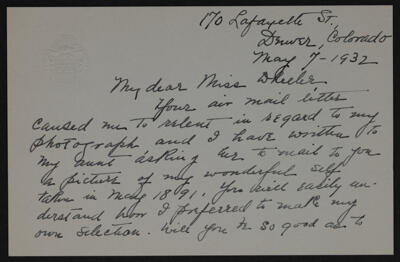 170 Lafayette St.
Denver, Colorado
May 7-1932
My dear Miss Wheeler
Your air mail letter
caused me to relent in regard to my
photograph and I have written to
my aunt asking her to mail to you
a picture of my wonderful self
taken in May 1891. You will easily un-
derstand how I preferred to make my
own selection. Will you be so good as to